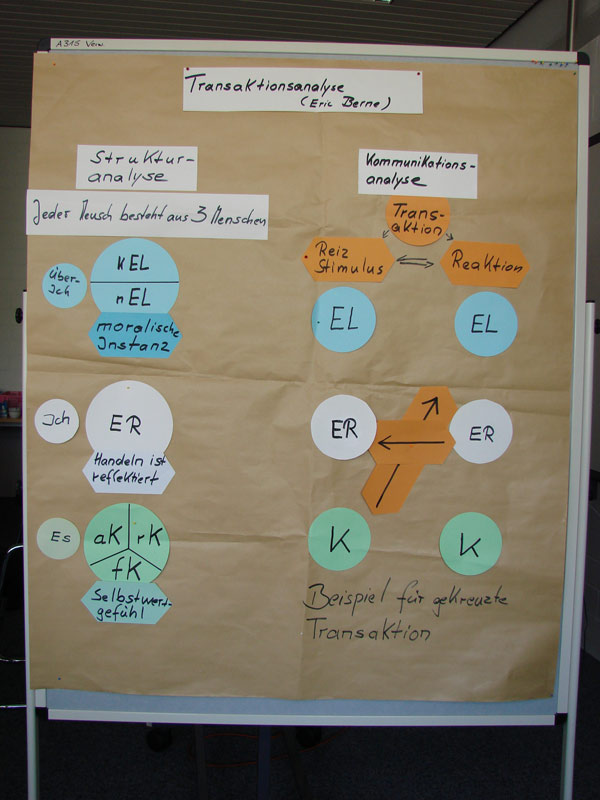 A315 Vew.
Transaktionsanalyse
(Eric Berne)
Struktur-
analyse
Jeder Mensch besteht aus 3 Menschen
Über-
Ich
kEL
nEL
moralische
Instanz
Ich
ER
Handeln ist
reflektiert
Es
aK
rK
fK
Selbstwert-
gefühl
Kommunikations-
analyse
Trans-
aktion
Reiz
Stimulus
Reaktion
EL
EL
ER
ER
K
K
Beispiel für gekreuzte
Transaktion